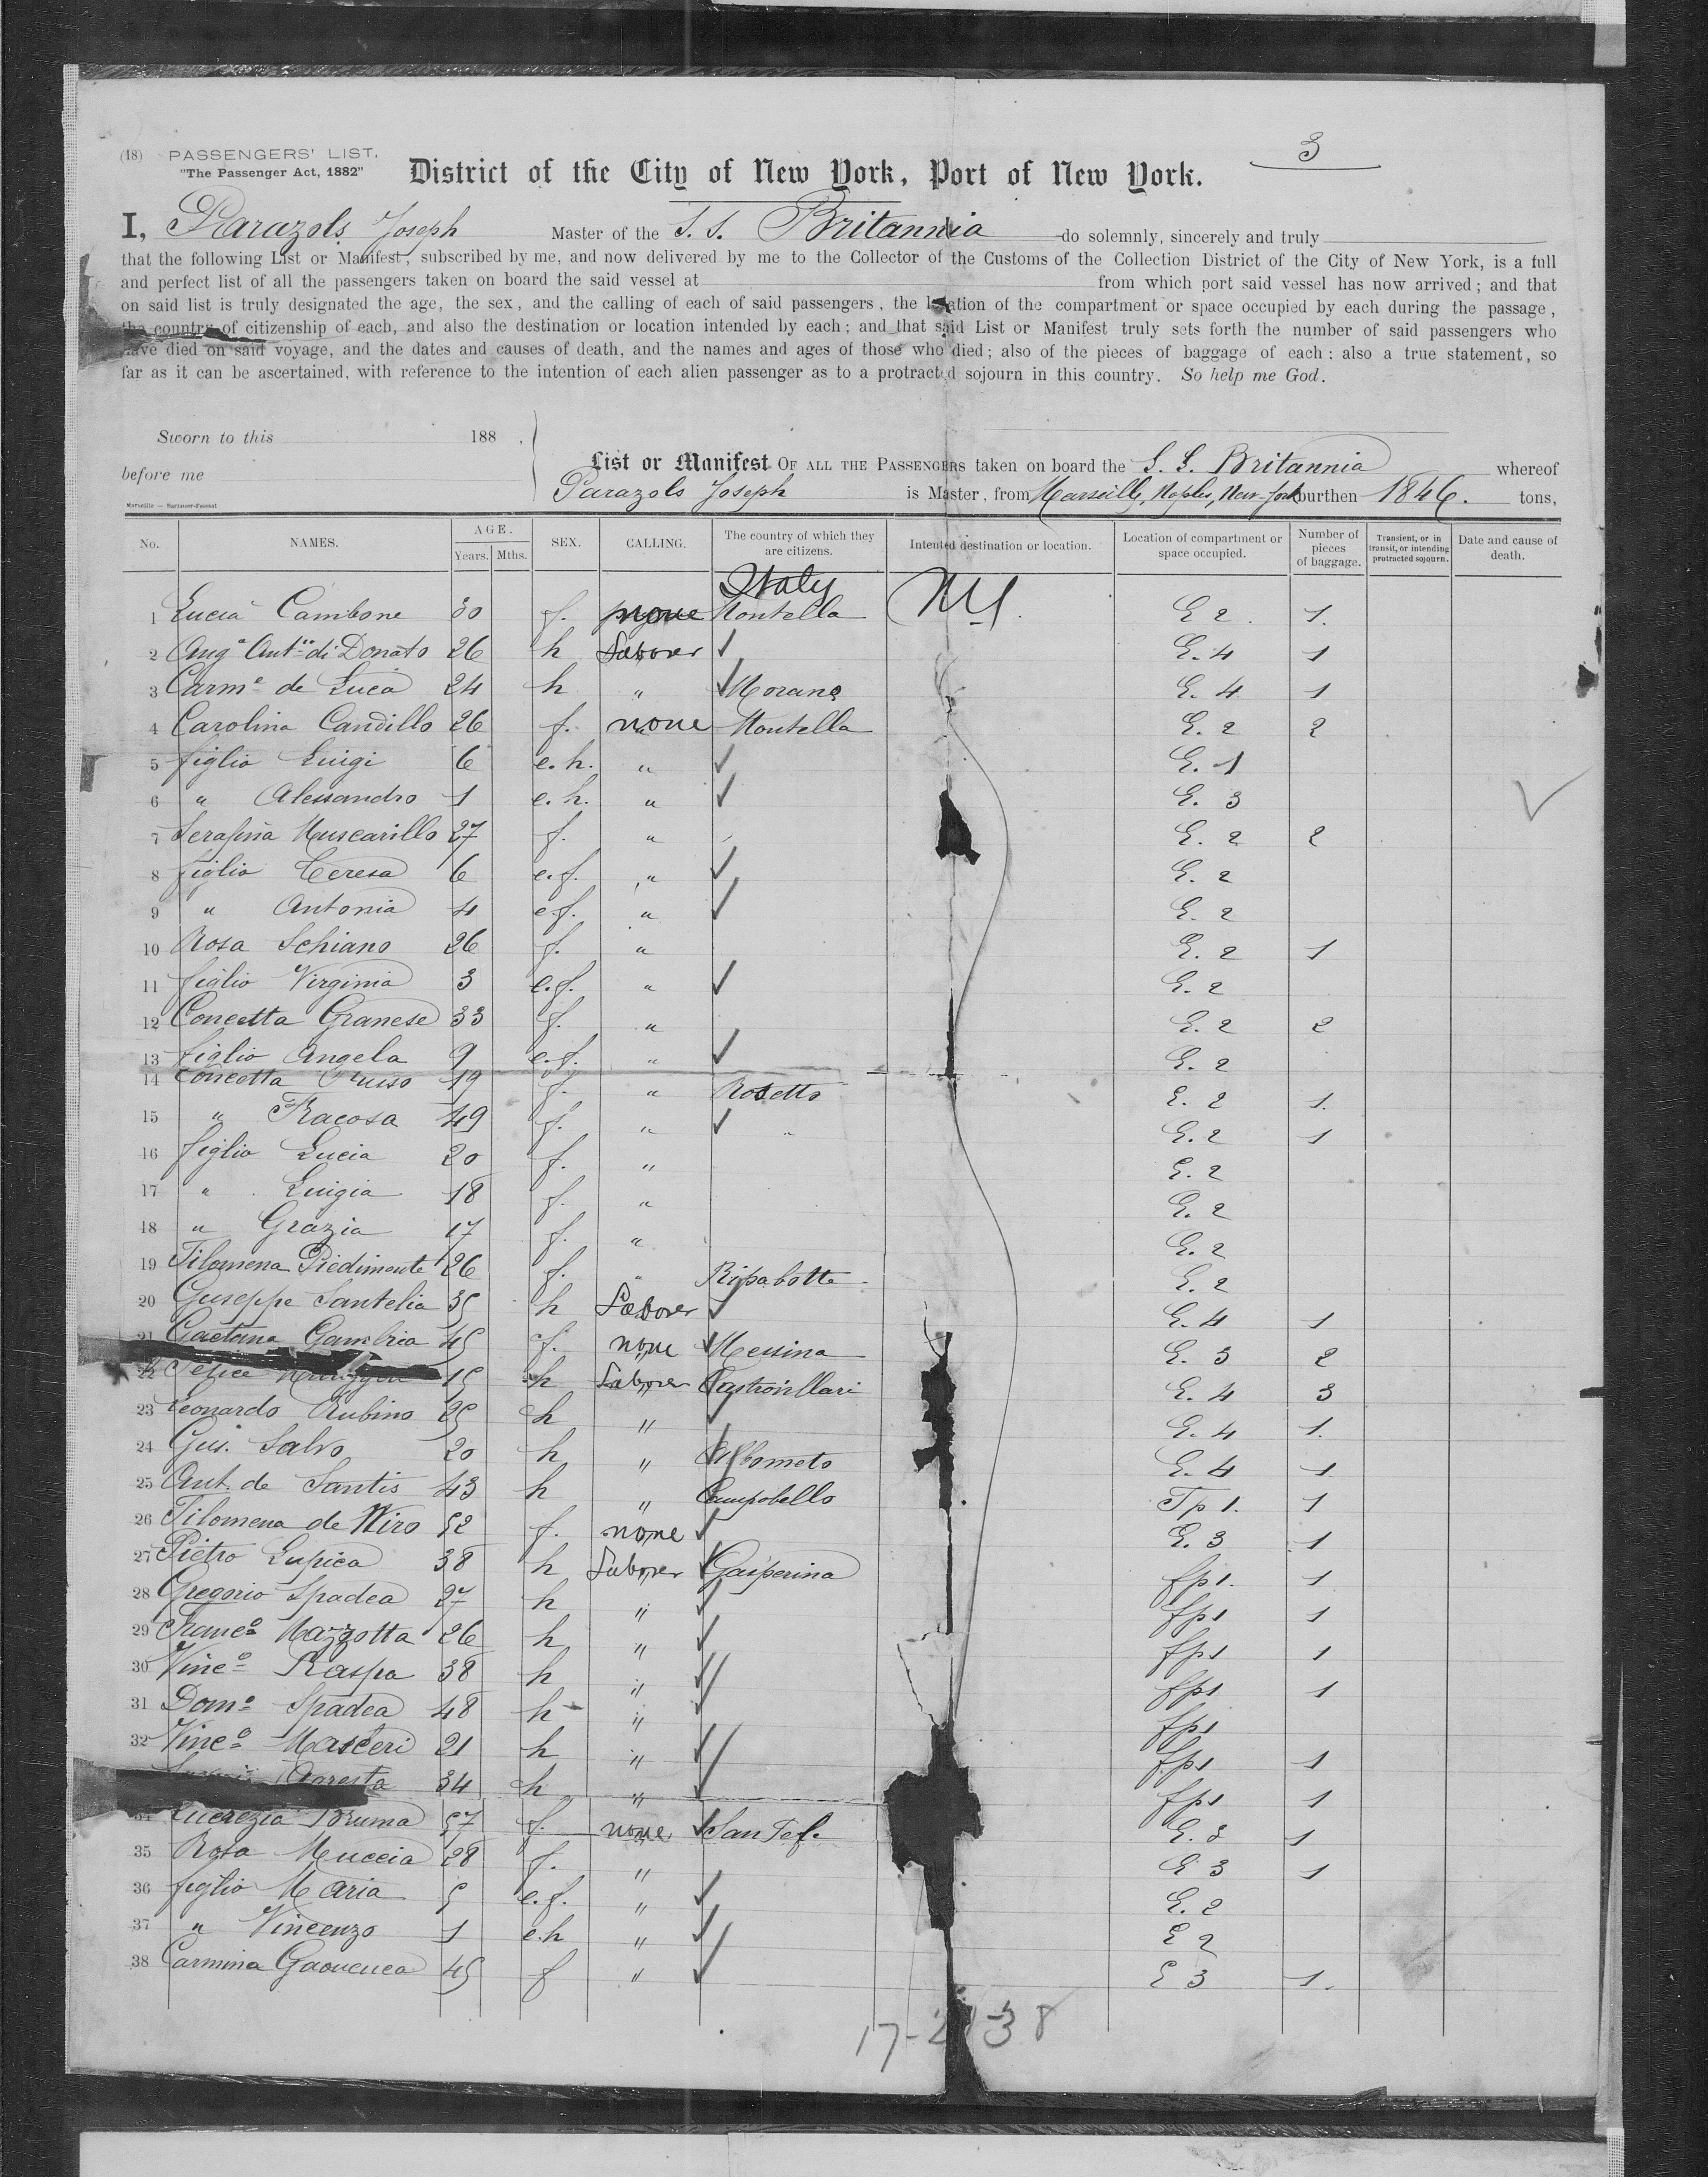 3
(18) PASSENGERS' LIST.
"The Passenger Act, 1882"
District of the City of New York, Port of New York.
I, Parazols Joseph Master of the S. S. Britannia do solemnly, sincerely and truly
that the following List or Manifest, subscribed by me, and now delivered by me to the Collector of the Customs of the Collection District of the City of New York, is a full
and perfect list of all the passengers taken on board the said vessel at from which port said vessel has now arrived; and that
on said list is truly designated the age, the sex, and the calling of each of said passengers, the location of the compartment or space occupied by each during the passage,
the country of citizenship of each, and also the destination or location intended by each; and that said List or Manifest truly sets forth the number of said passengers who
have died on said voyage, and the dates and causes of death, and the names and ages of those who died; also of the pieces of baggage of each: also a true statement, so
far as it can be ascertained, with reference to the intention of each alien passenger as to a protracted sojourn in this country. So help me God.
Sworn to this 188 .
before me
List or Manifest OF ALL THE PASSENGERS taken on board the S. S. Britannia whereof
Parazols Joseph is Master, from Marseille, Naples, New-York burthen 1846. tons,
No. NAMES. AGE. Years. Mths. SEX. CALLING. The country of which they are citizens. Intented destination or location. Location of compartment or space occupied. Number of pieces of baggage. Transient, or in transit, or intending protracted sojourn. Date and cause of death.
Italy
1 Lucia Cambone 30 f. none Montella NY. E 2. 1.
2 Ang.a Ant.o di Donato 26 h Laborer ✓ E. 4 1
3 Carm.e de Luca 24 h " ✓ Morano E. 4 1
4 Carolina Candillo 26 f. none Montella E. 2 2
5 figlio Luigi 6 e. h. " ✓ E. 1
6 " Alessandro 1 e. h. " ✓ E. 3
7 Serafina Muscarillo 27 f. " E. 2 2
8 figlio Teresa 6 e. f. " ✓ E. 2
9 " Antonia 4 e f. " ✓ E. 2
10 Rosa Schiano 26 f. " E. 2 1
11 figlio Virginia 3 e. f. " ✓ E. 2
12 Concetta Granese 33 f. " E. 2 2
13 figlio Angela 9 e. f. " ✓ E. 2
14 Concetta 19 f. " Rosetto E. 2 1.
15 " Racosa 49 f. " ✓ " E. 2 1
16 figlio Lucia 20 f. " E. 2
17 " Luigia 18 f. " E. 2
18 " Grazia 17 f. " E. 2
19 Filomena Piedimonte 26 f. " Ripabotte E. 2
20 Guseppe Santelia 35 h Laborer ✓ E. 4 1
21 Gaetana Gambria 45 f. none ✓ Messina E. 3 2
22 Felice 15 h Laborer Castrovillari E. 4 3
23 Leonardo Rubino 25 h " ✓ E. 4 1.
24 Gus. Salvo 20 h " ✓ E. 4 1
25 Ant. de Santis 43 h " Campobello Tp 1. 1
26 Filomena de Wiro 52 f. none ✓ E. 3 1
27 Pietro Lupica 38 h Laborer ✓ Gasperina fp 1. 1
28 Gregorio Spadea 27 h " ✓ fp 1 1
29 Franc.o Mazzotta 26 h " ✓ fp 1 1
30 Vinc.o Raspa 38 h " ✓ fp 1 1
31 Dom.o Spadea 48 h " ✓ fp 1
32 Vinc.o Masceri 21 h " ✓ fp 1 1
Agresta 34 h " ✓ fp 1 1
34 Lucrezia Bruma 57 f. none ✓ San Fel. E. 3 1
35 Rosa Muccia 28 f. " E 3 1
36 figlio Maria 5 e. f. " ✓ E. 2
37 " Vincenzo 1 e. h " ✓ E 2
38 Carmina 45 f " ✓ E 3 1.